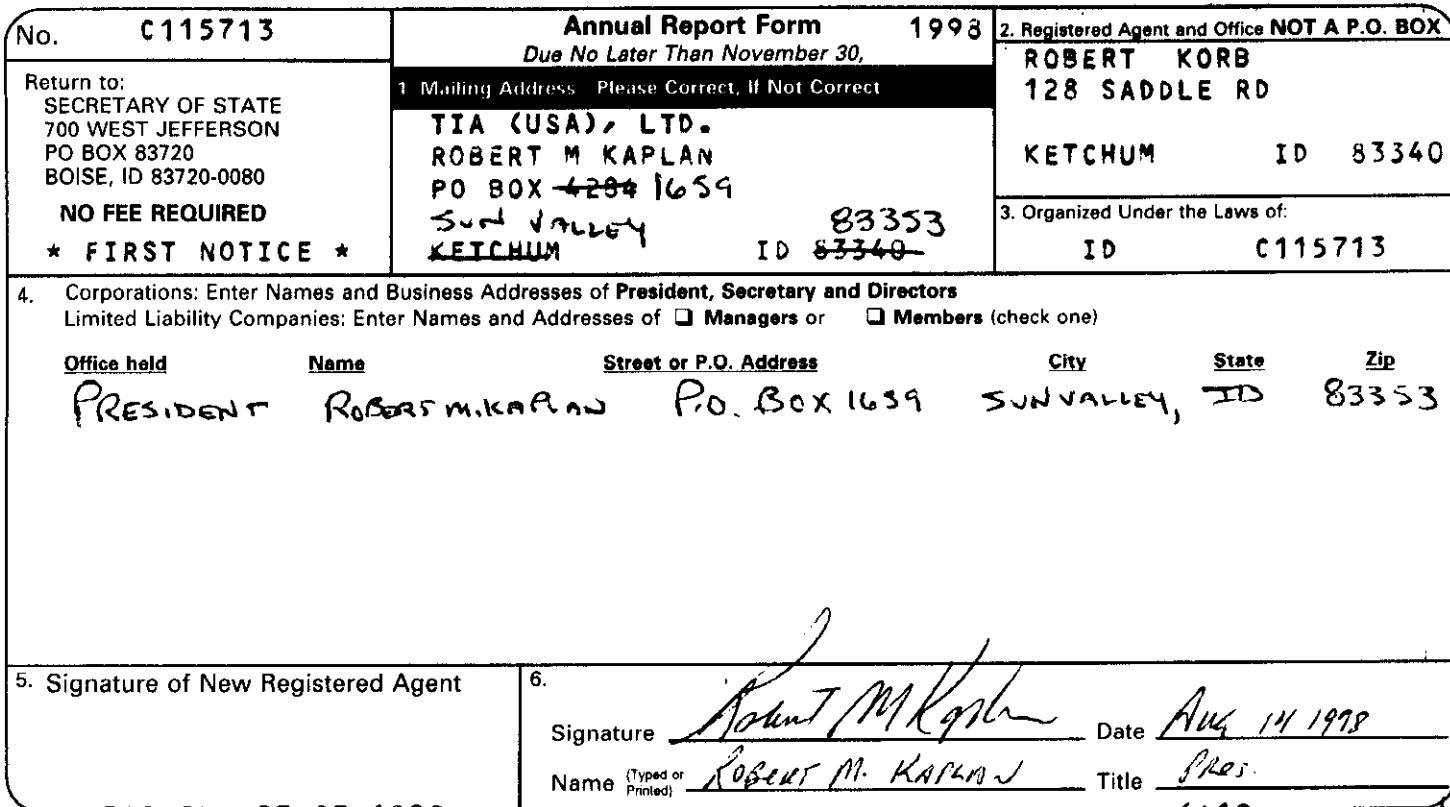 No. C115713
Return to:
SECRETARY OF STATE
700 WEST JEFFERSON
PO BOX 83720
BOISE, ID 83720-0080
NO FEE REQUIRED
* FIRST NOTICE *
Annual Report Form 1998
Due No Later Than November 30,
1 Mailing Address Please Correct, If Not Correct
TIA (USA), LTD.
ROBERT M KAPLAN
PO BOX 4284 1659
SUN VALLEY 83353
KETCHUM ID 83340
2. Registered Agent and Office NOT A P.O. BOX
ROBERT KORB
128 SADDLE RD
KETCHUM ID 83340
3. Organized Under the Laws of:
ID C115713
4. Corporations: Enter Names and Business Addresses of President, Secretary and Directors
Limited Liability Companies: Enter Names and Addresses of ☐ Managers or ☐ Members (check one)
Office held Name Street or P.O. Address City State Zip
PRESIDENT ROBERT M. KAPLAN P.O. BOX 1659 SUN VALLEY, ID 83353
5. Signature of New Registered Agent
6.
Signature Robert M Kaplan Date Aug 14 1998
Name (Typed or Printed) ROBERT M. KAPLAN Title Pres.